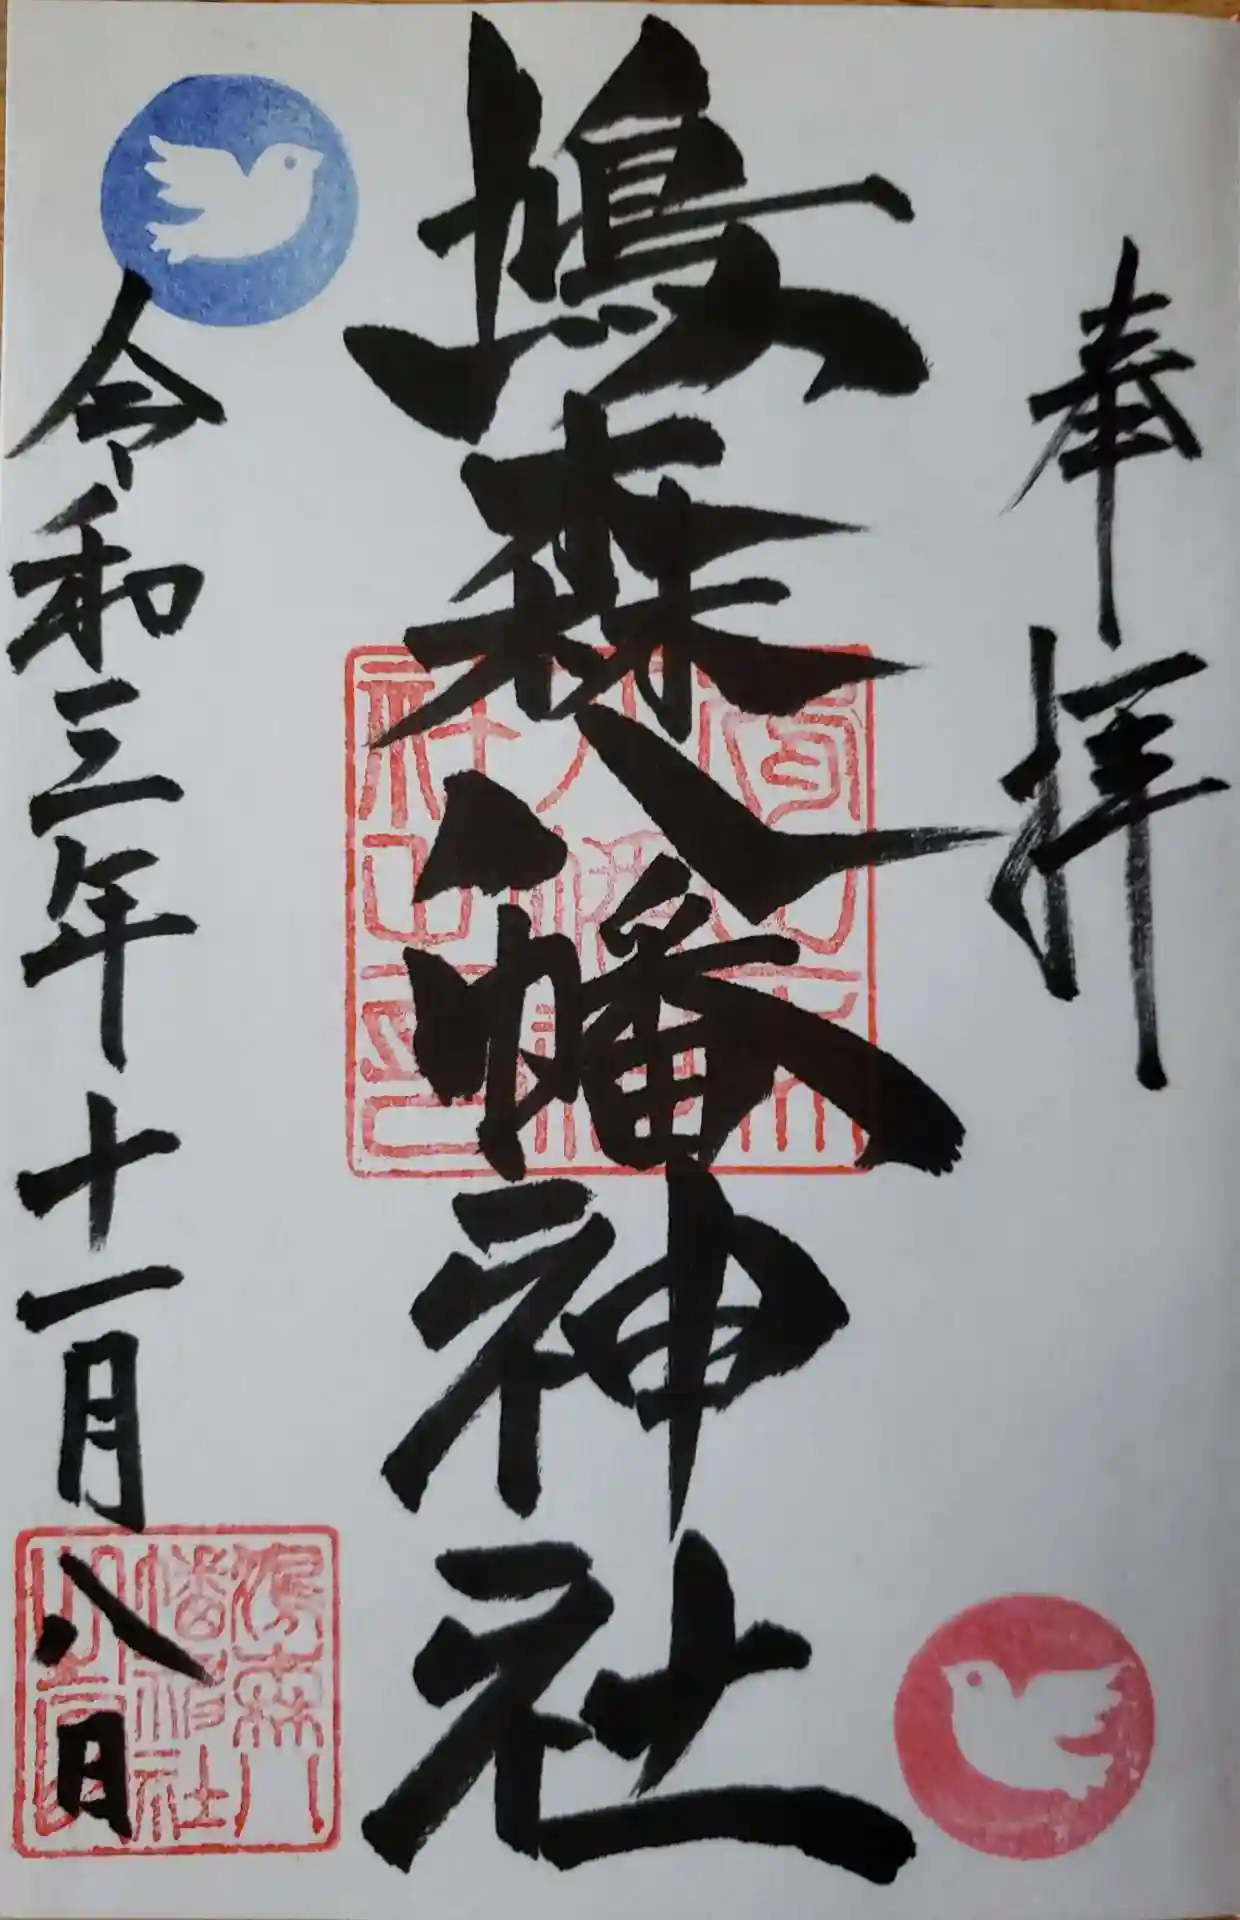 奉拝
鳩森八幡神社
令和三年十一月八日
鳩森八幡神社